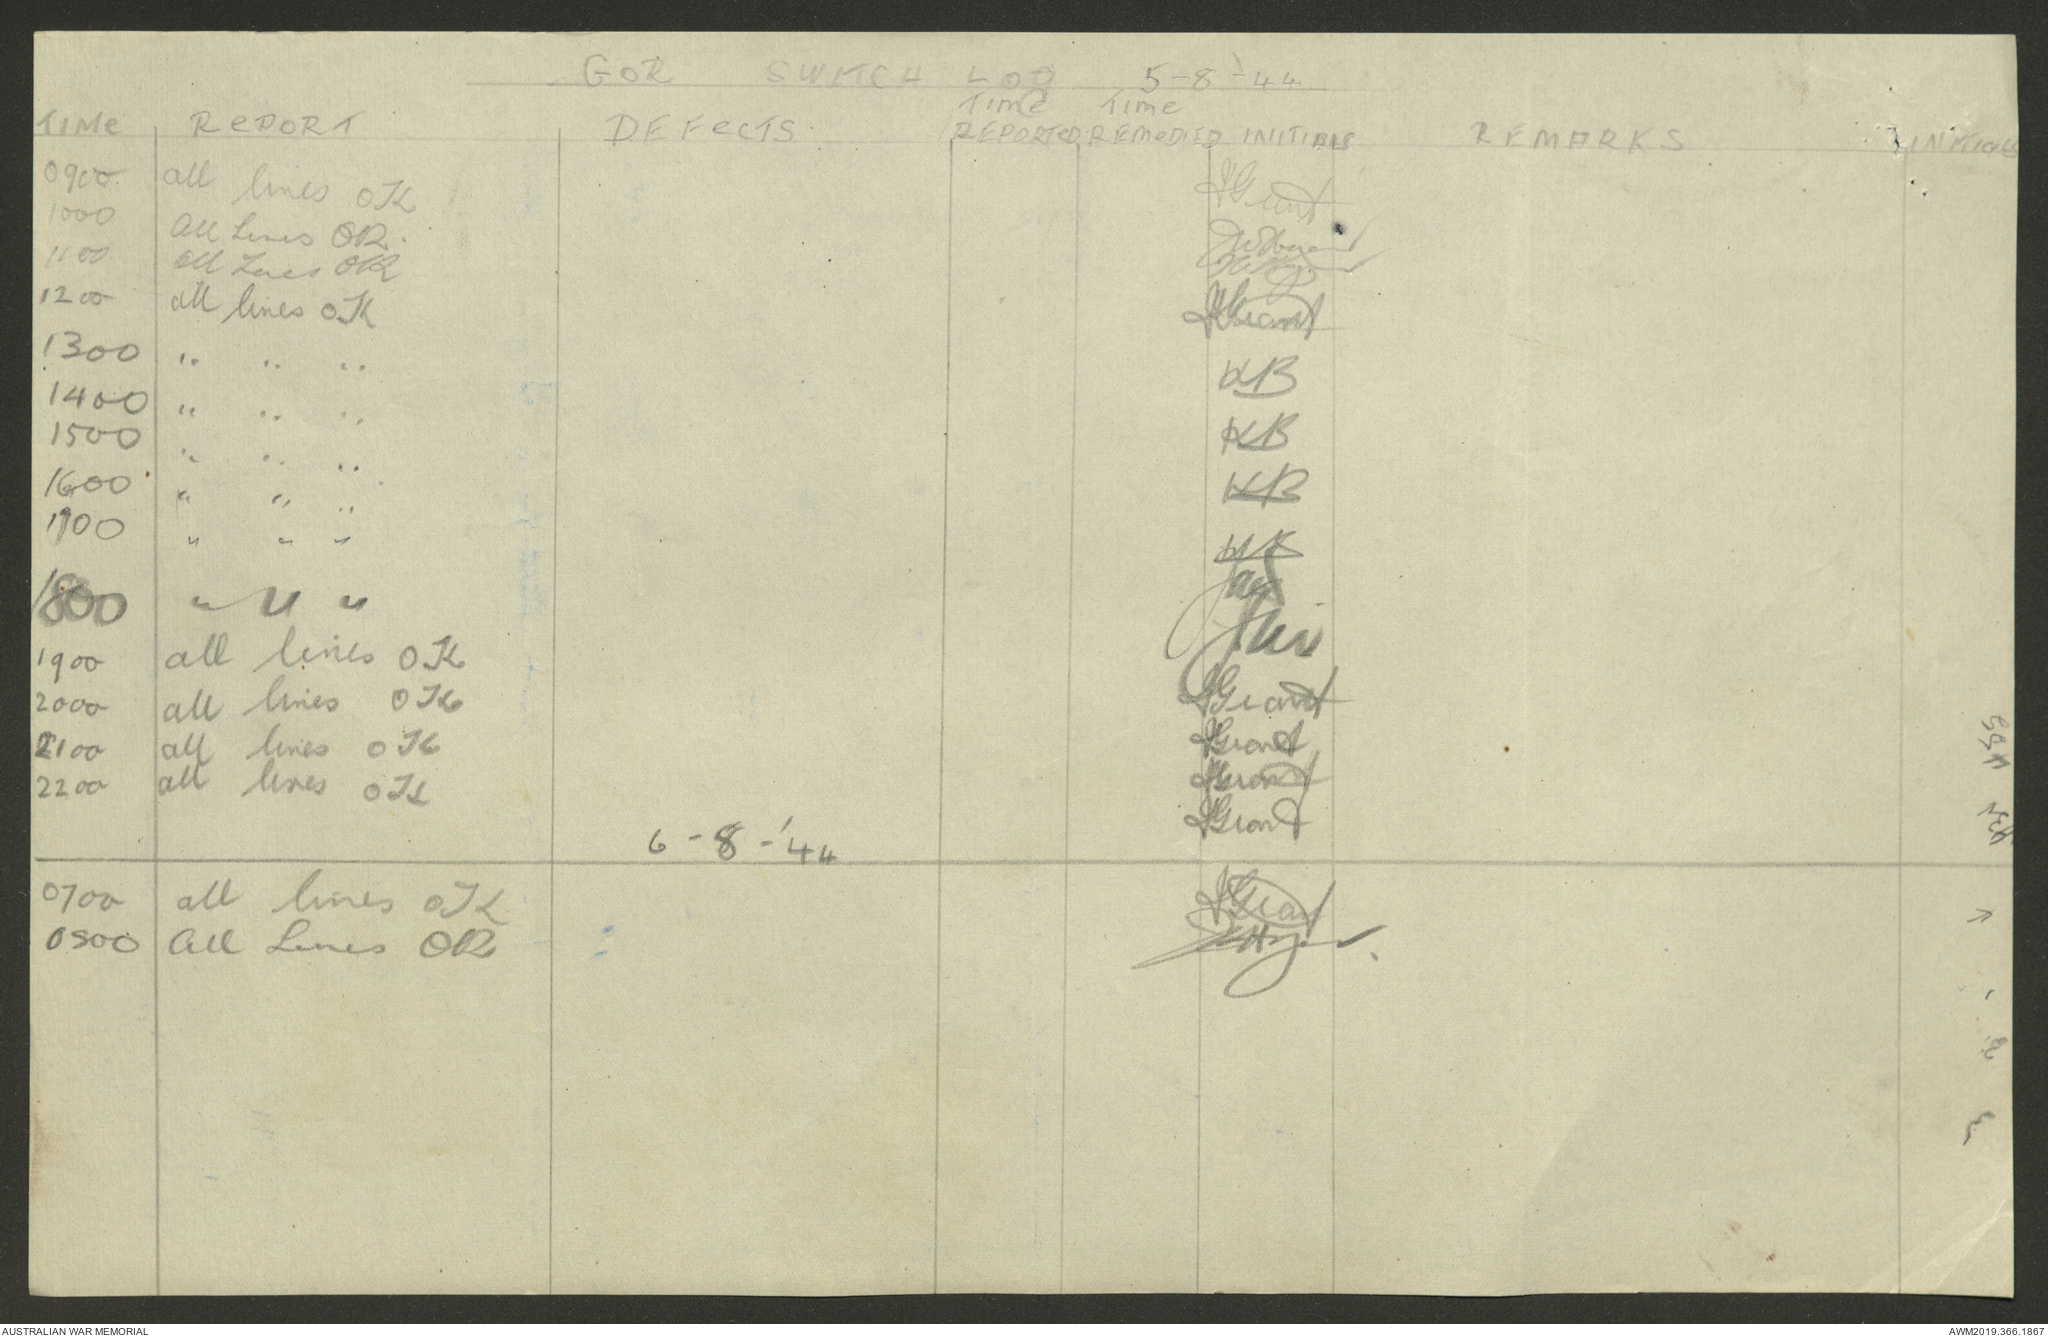 GOR SWITCH LOG 5-8-'44
TIME REPORT DEFECTS Time REPORTED Time REMEDIED INITIALS REMARKS INITIALS
0900 all lines OK JGrant
1000 All Lines OK.
1100 All Lines OK
1200 all lines OK JGrant
1300 " " " KB
1400 " " " KB
1500 " " " KB
1600 " " " KB
1700 " " "
1800 " " "
1900 all lines OK JGrant
2000 all lines OK JGrant
2100 all lines OK JGrant
2200 all lines OK JGrant
6-8-'44
0700 all lines OK JGrant
0800 All Lines OK
AUSTRALIAN WAR MEMORIAL
AWM2019.366.1867